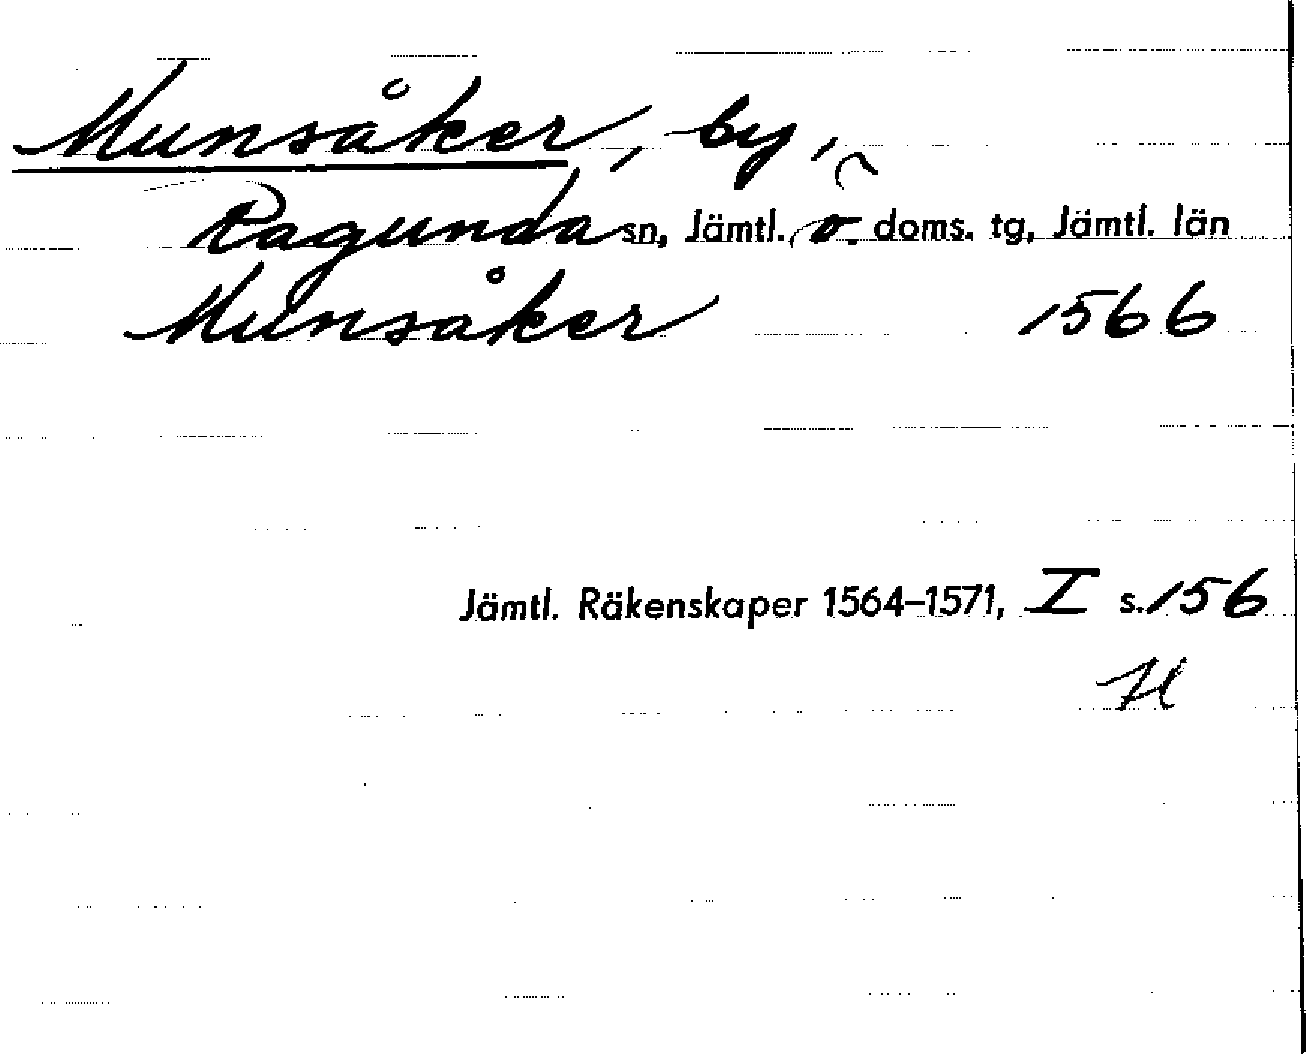 Munsåker, by,
Ragunda sn, Jämtl. ö. doms. tg, Jämtl. län
Munsåker 1566
Jämtl. Räkenskaper 1564–1571, I s. 156